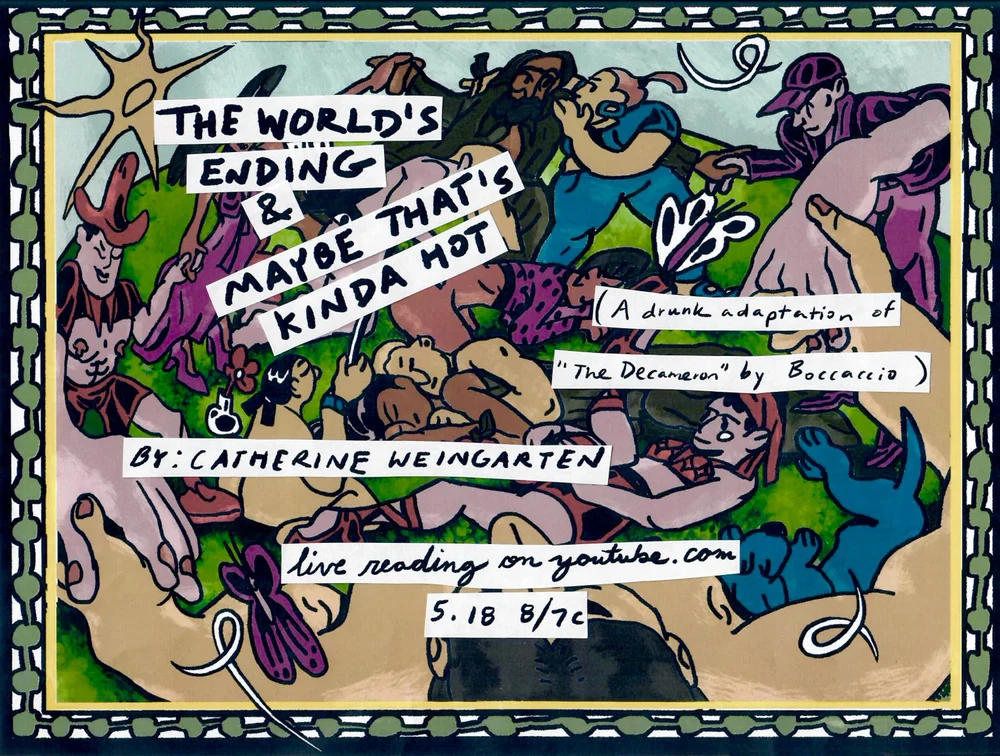 THE WORLD'S
ENDING
&
MAYBE THAT'S
KINDA HOT
(A drunk adaptation of
"The Decameron" by Boccaccio)
BY: CATHERINE WEINGARTEN
live reading on youtube.com
5.18 8/7c